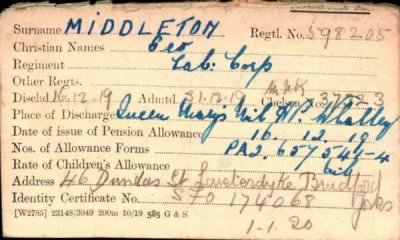 Surname MIDDLETON Regtl. No. 598205
Christian Names Geo
Regiment Lab: Corp
Other Regts.
Dischd 16.12.19 Admtd. 31.12.19 Chelsea No.
Place of Discharge Queen Marys Mil Hl. Whalley
Date of issue of Pension Allowance 16.12.19
Nos. of Allowance Forms PA2. 657543-4
Rate of Children's Allowance nil
Address 46 Dundas St Laisterdyke Bradford
Identity Certificate No. 570 174068 Yorks
[W2785] 23148/3049 200m 10/19 585 G & S
1-1-20